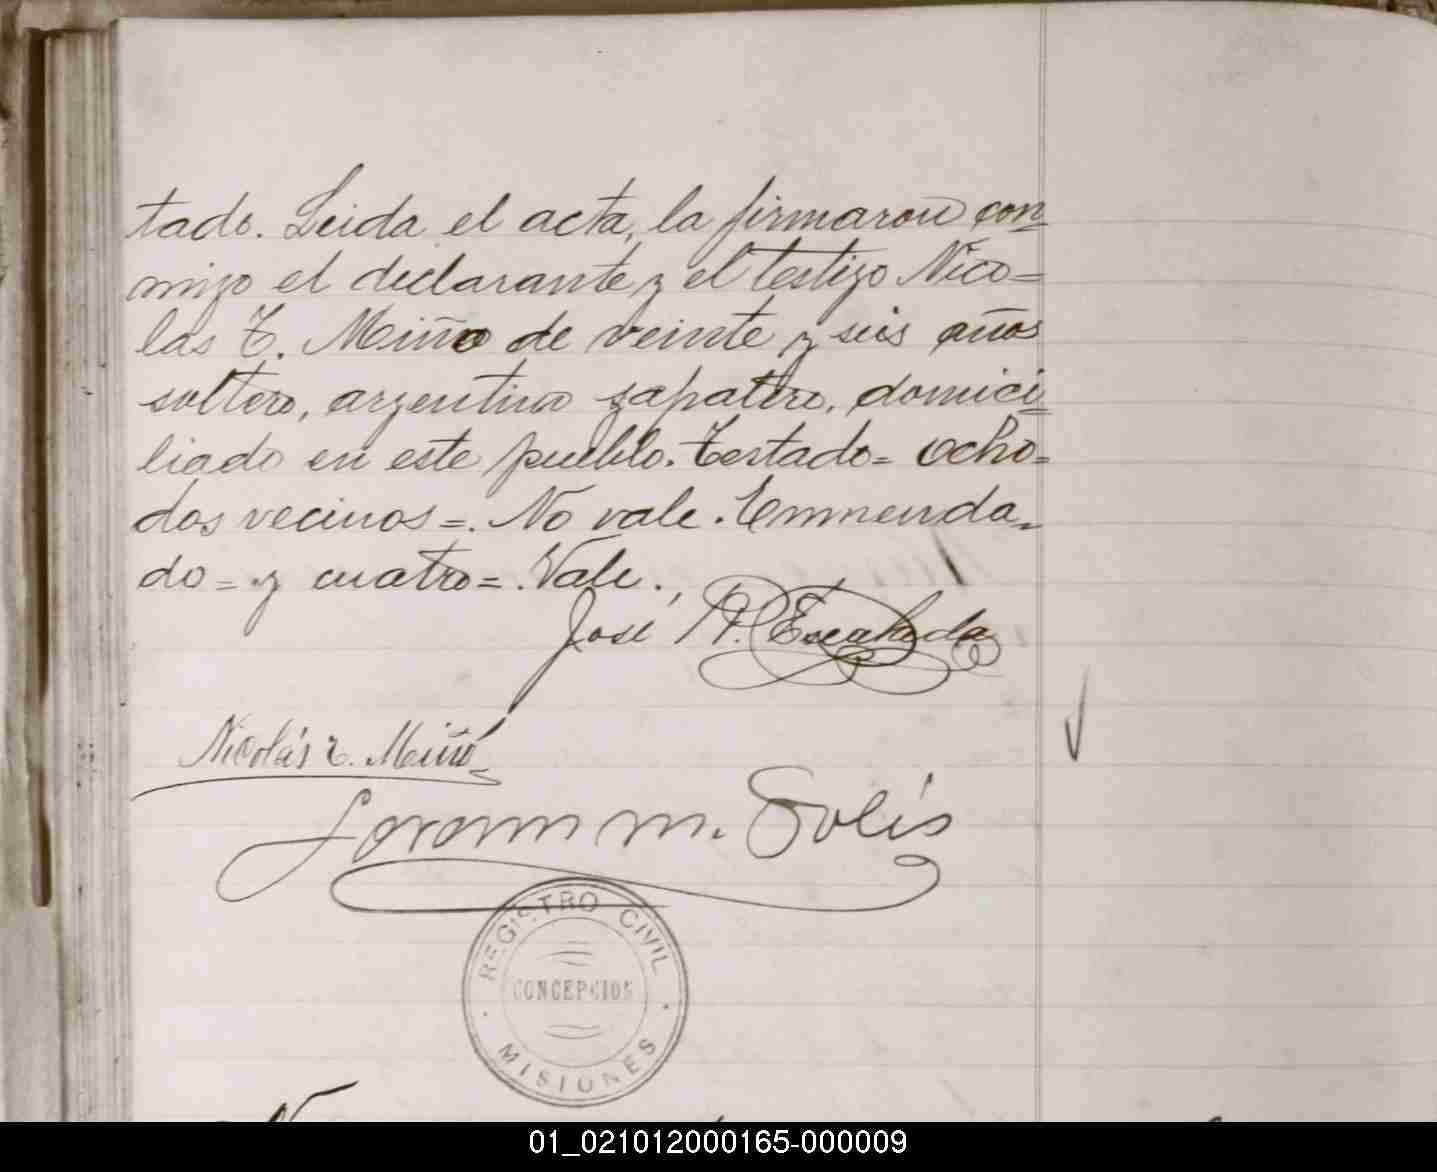 tado. Leida el acta, la firmaron con-
migo el declarante y el testigo Nico=
las T. Miño de veinte y seis años
soltero, argentino zapatero, domici-
liado en este pueblo. Testado= ocho=
dos vecinos=. No vale. Emmenda-
do= y cuatro=. Vale.,
José A. Escalada
Nicolás T. Miño
m. Solís
REGISTRO CIVIL
CONCEPCION
MISIONES
01_021012000165-000009